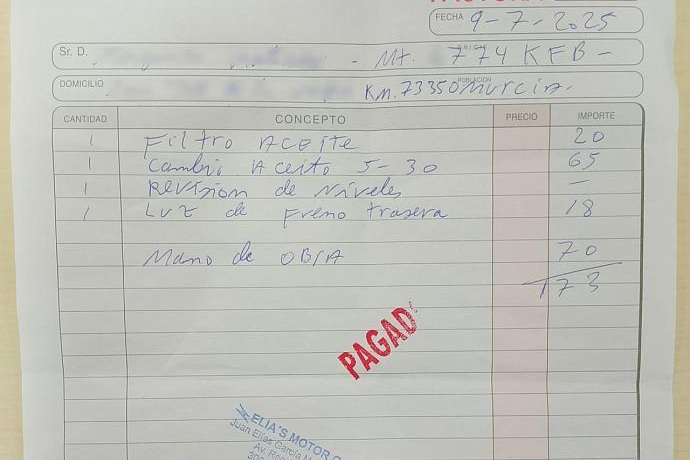 FECHA 9-7-2025
Sr. D. - Mt. 774 KFB -
DOMICILIO Km. 73350 POBLACIÓN Murcia.
CANTIDAD CONCEPTO PRECIO IMPORTE
1 Filtro ACEite 20
1 Cambio Aceito 5-30 65
1 REVision de Niveles —
1 LUZ de Freno trasera 18
Mano de OBRA 70
173
PAGADO
ELIA'S MOTOR
Juan Elías García
Av.